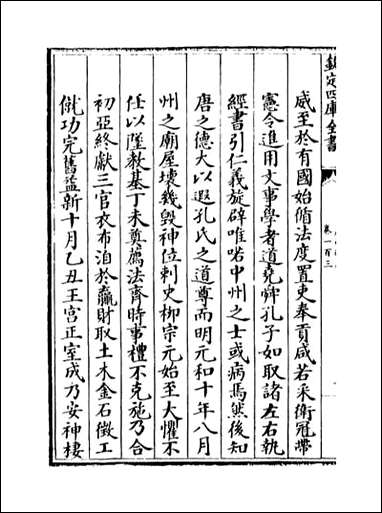 欽定四庫全書
卷一百三
威至於有國始脩法度置吏奉貢咸若采衛冠帶
憲令進用文事學者道堯舜孔子如取諸左右執
經書引仁義旋辟唯喏中州之士或病焉然後知
唐之德大以遐孔氏之道尊而明元和十年八月
州之廟屋壞幾毀神位刺史柳宗元始至大懼不
任以墜教基丁未奠薦法齊時事禮不克施乃合
初亞終獻三官衣布洎於贏財取土木金石徵工
僦功完舊益新十月乙丑王宮正室成乃安神棲